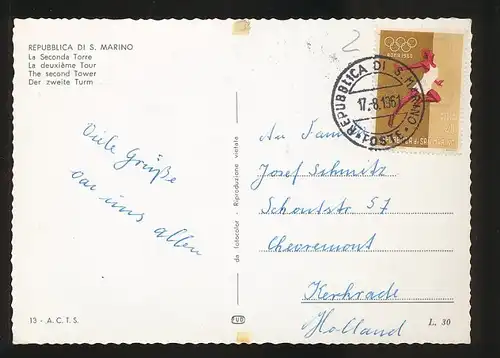 REPUBBLICA DI S. MARINO
La Seconda Torre
La deuxième Tour
The second Tower
Der zweite Turm
Viele Grüße
von uns allen
13 - A.C.T.S.
da fotocolor - Riproduzione vietata
2
ROMA 1960
REPUBBLICA DI S. MARINO
17.8.1961
POSTE
An Fam
Josef Schmitz
Schoutstr 57
Chevremont
Kerkrade
Holland
L. 30